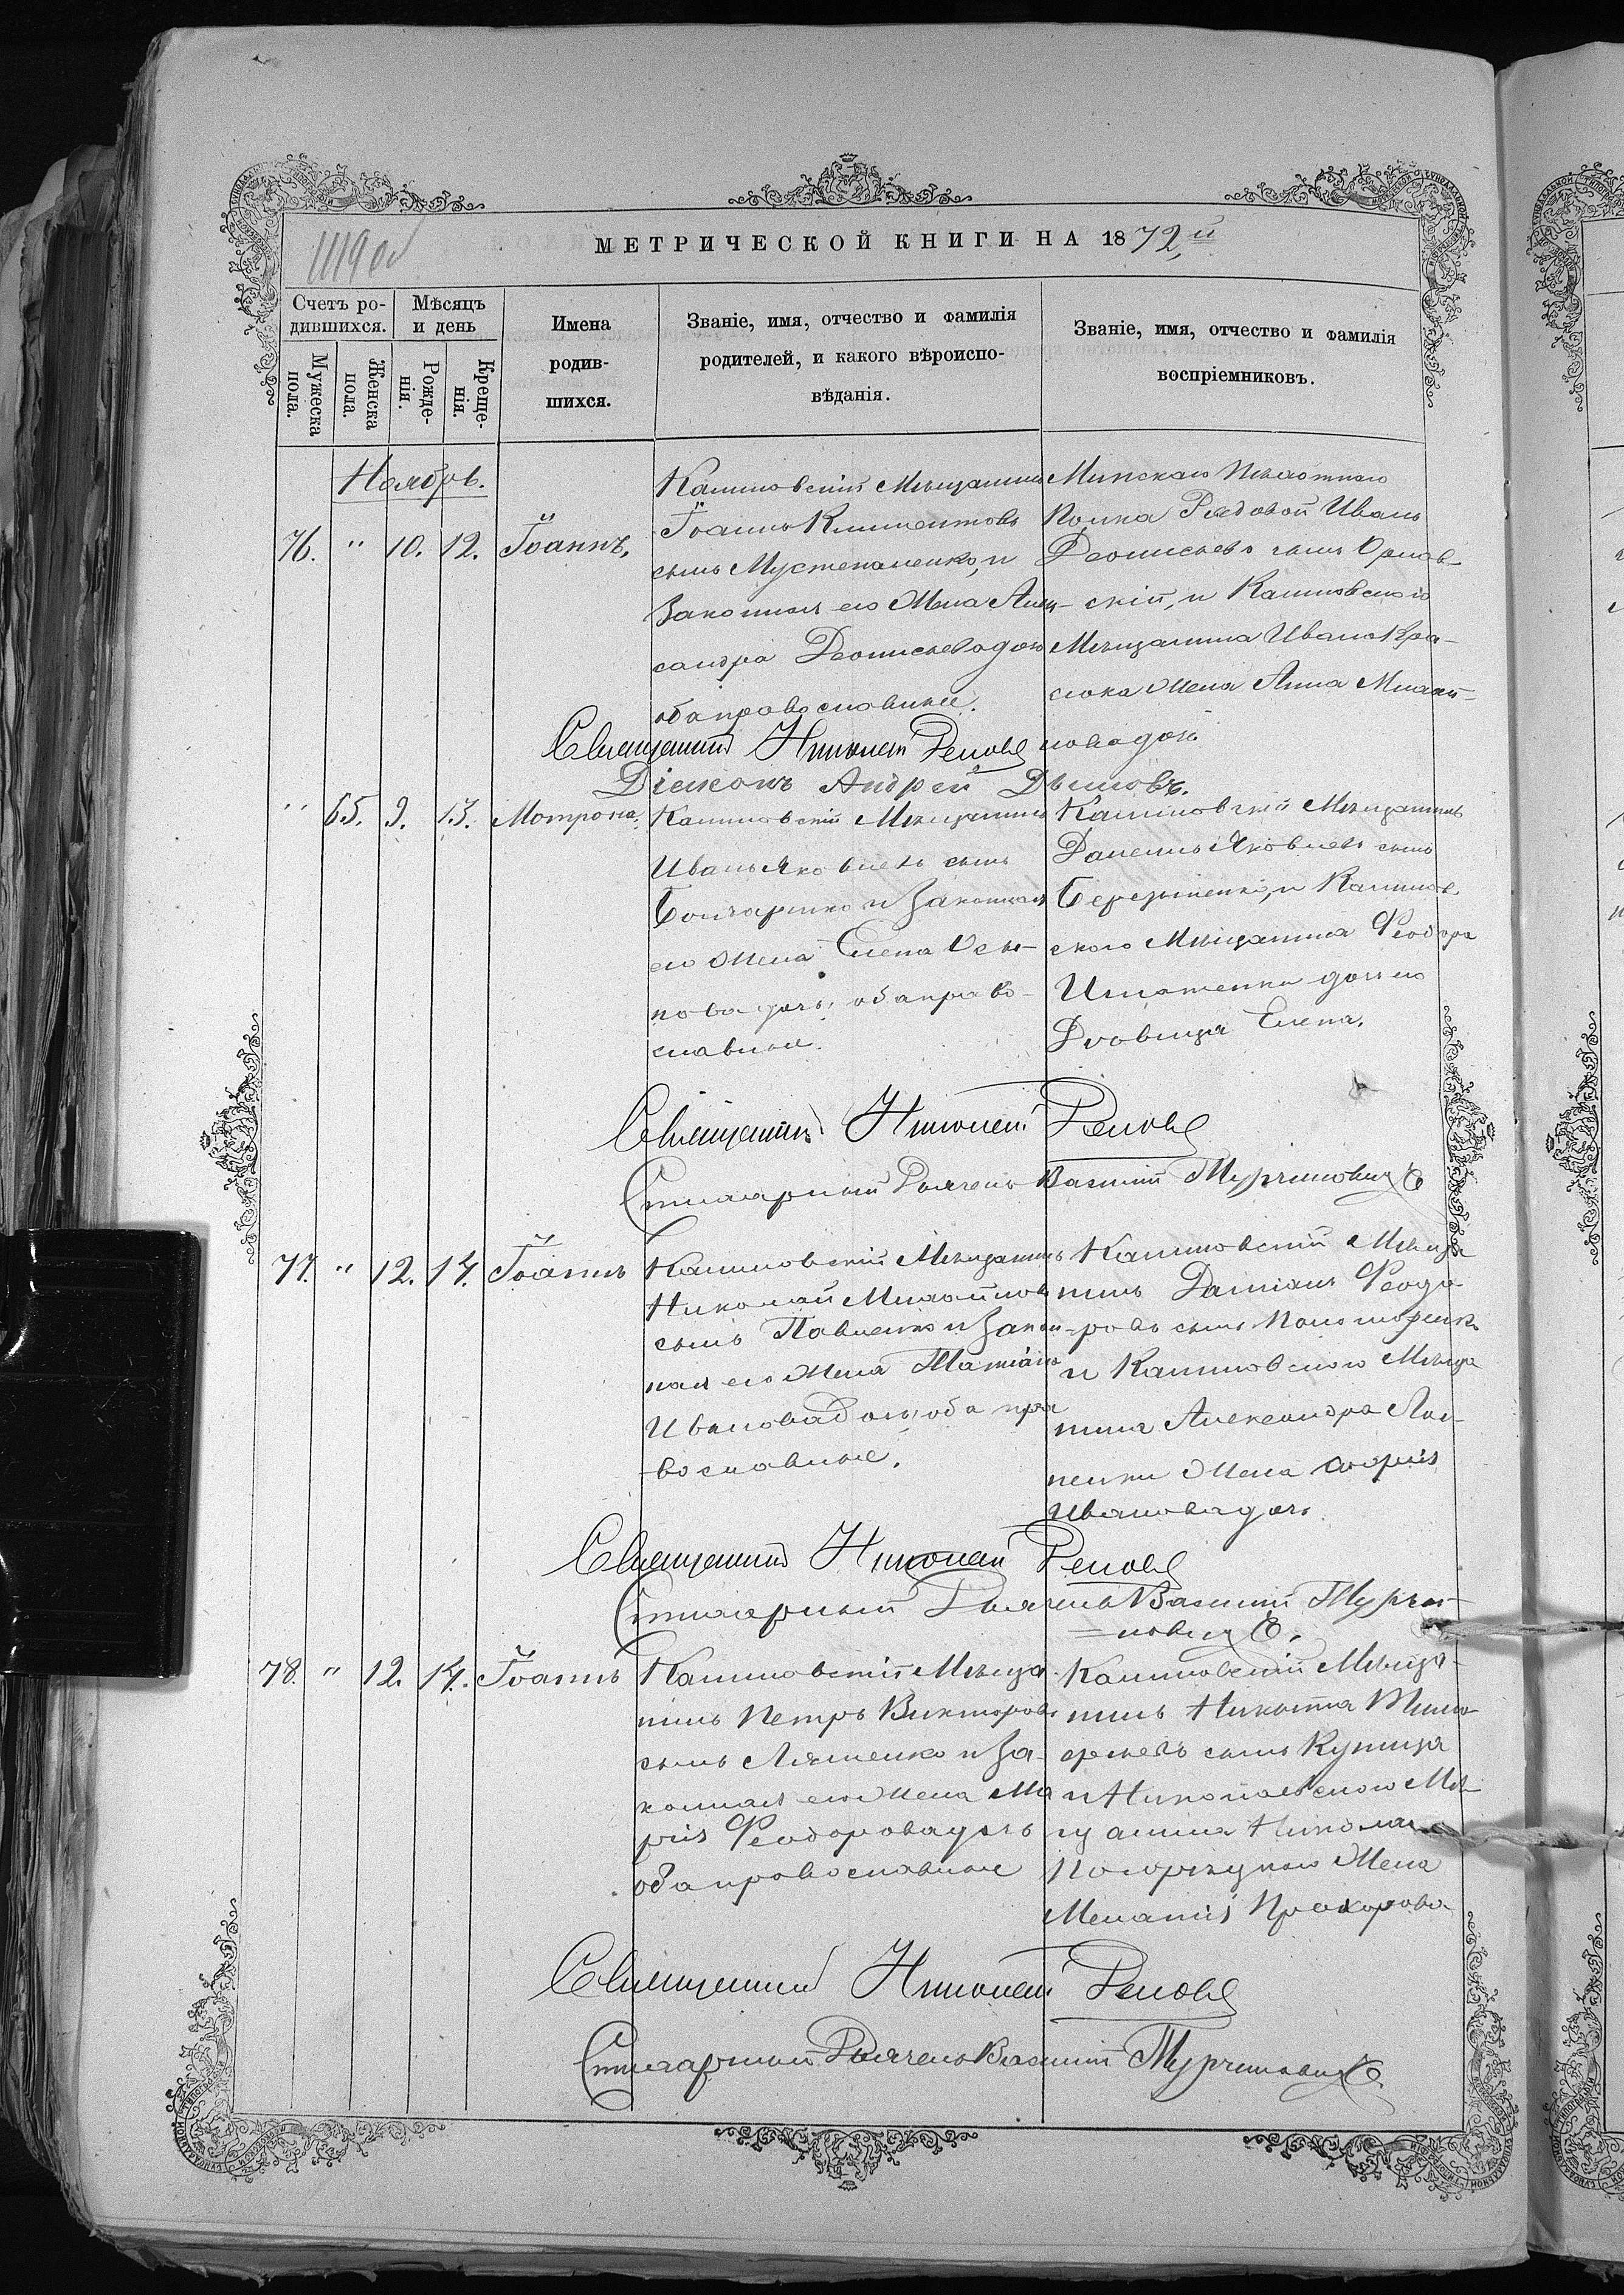 МЕТРИЧЕСКОЙ КНИГИ НА 1872й
1119 об
Счетъ родившихся.
Мѣсяцъ и день
Имена родившихся.
Званіе, имя, отчество и фамилія родителей, и какого вѣроисповѣданія.
Званіе, имя, отчество и фамилія воспріемниковъ.
Мужеска пола.
Женска пола.
Рожденія.
Крещенія.
Ноябрь.
76. " 10. 12. Іоаннъ,
Калиновскій Мѣщанинъ
Іоаннъ Климентовъ
сынъ Мустепаненко, и
Законная его Жена Алек-
сандра Деонисьева дочь
оба православные.
Минскаго Пѣхотнаго
Полка Рядовой Иванъ
Деонисьевъ сынъ Орлов-
скій, и Калиновскаго
Мѣщанина Ивана Кра-
сюка Жена Анна
нова дочь
Священникъ Николай
Діаконъ Андрей
" 65. 9. 13. Мотрона.
Калиновскій Мѣщанинъ
Иванъ Яковлевъ сынъ
Бончаренко и Законная
его Жена Елена
нова дочь, оба право-
славные.
Калиновскій Мѣщанинъ
Даніилъ Яковлевъ сынъ
и Калинов
скаго Мѣщанина Феодора
Игнатенки дочь его
Дѣвица Елена.
Священникъ Николай
Стихарный Дьячекъ Василій Турчиновичъ
77. " 12. 14. Іоаннъ
Калиновскій Мѣщанинъ
Николай Михайловъ
сынъ Павленко и Закон
ная его Жена Татіана
Иванова дочь, оба пра
вославные.
Калиновскій Мѣща
нинъ Даміанъ Феодо
ровъ сынъ
и Калиновскаго Мѣща
нина Александра
ненки Жена Марія
Иванова дочь.
Священникъ Николай
Стихарный Дьячекъ Василій Турчи-
=новичъ.
78. " 12. 14. Іоаннъ
Калиновскій Мѣща
нинъ Петръ Викторовъ
сынъ Ляшенко и За-
конная его Жена Ма
рія Феодорова дочь
оба православные
Калиновскій Мѣща-
нинъ Никита Тимо
феевъ сынъ Куница
и Николаевскаго Мѣ
щанина Николая
Жена
Меланія Прохорова
Священникъ Николай
Стихарный Дьячекъ Василій Турчиновичъ.